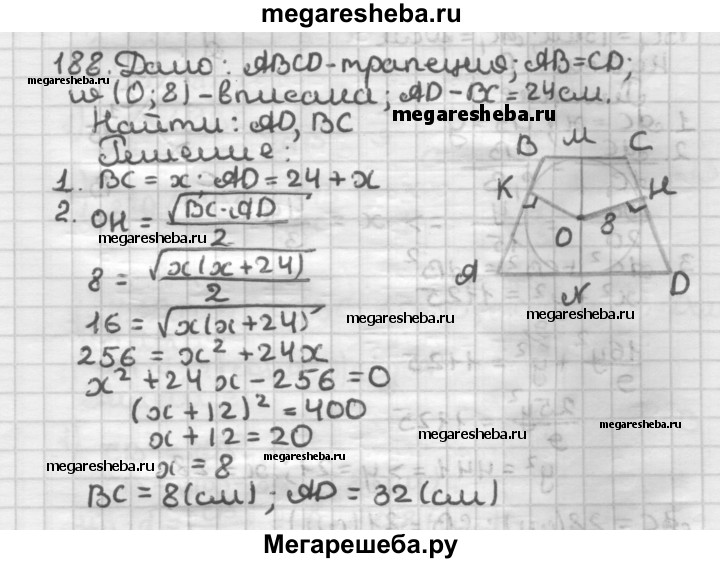 megaresheba.ru
188. Дано: ABCD-трапеция; AB=CD;
megaresheba.ru
w (O; 8) - вписана; AD-BC=24см.
megaresheba.ru
Найти: AD, BC
Решение:
1. BC = x; AD = 24 + x
2. OH = √(BC·AD) / 2
megaresheba.ru
8 = √(x(x+24)) / 2
16 = √(x(x+24))
megaresheba.ru
256 = x² + 24x
x² + 24x - 256 = 0
(x + 12)² = 400
x + 12 = 20
megaresheba.ru
megaresheba.ru
megaresheba.ru
x = 8
BC = 8(см); AD = 32(см)
B M C
K H
O 8
A N D
megaresheba.ru
Мегарешеба.ру